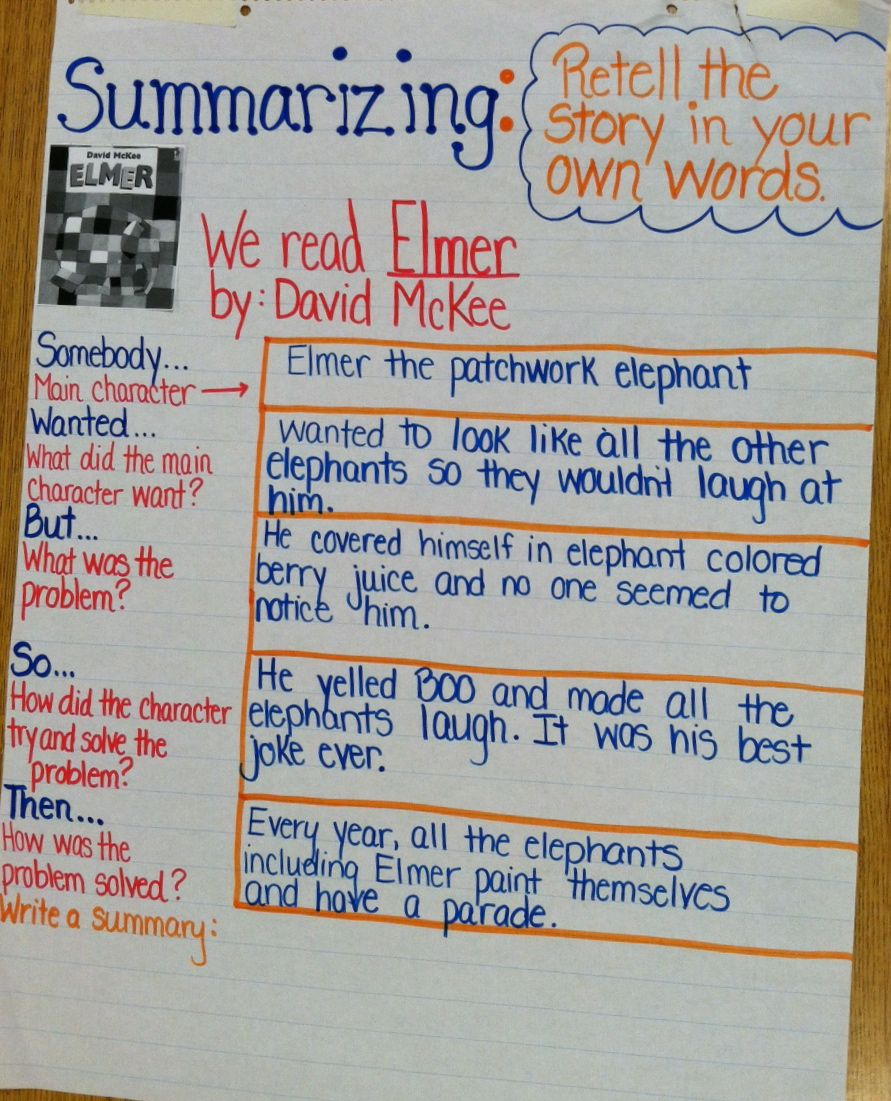 Summarizing:
Retell the
story in your
own words.
David McKee
ELMER
We read Elmer
by: David McKee
Somebody...
Main character →
Elmer the patchwork elephant
Wanted...
What did the main
character want?
wanted to look like all the other
elephants so they wouldn't laugh at
him.
But...
What was the
problem?
He covered himself in elephant colored
berry juice and no one seemed to
notice him.
So...
How did the character
try and solve the
problem?
He yelled BOO and made all the
elephants laugh. It was his best
joke ever.
Then...
How was the
problem solved?
Every year, all the elephants
including Elmer paint themselves
and have a parade.
Write a summary: